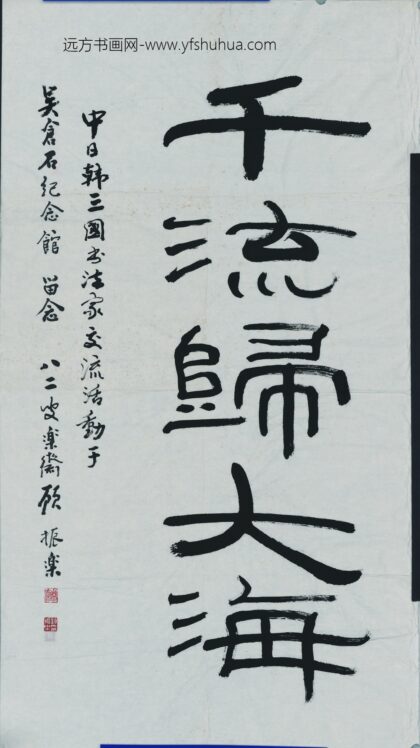 远方书画网-www.yfshuhua.com
千流歸大海
中日韩三國书法家交流活動于
吴倉石纪念館 留念 八二叟楽斋顾振楽